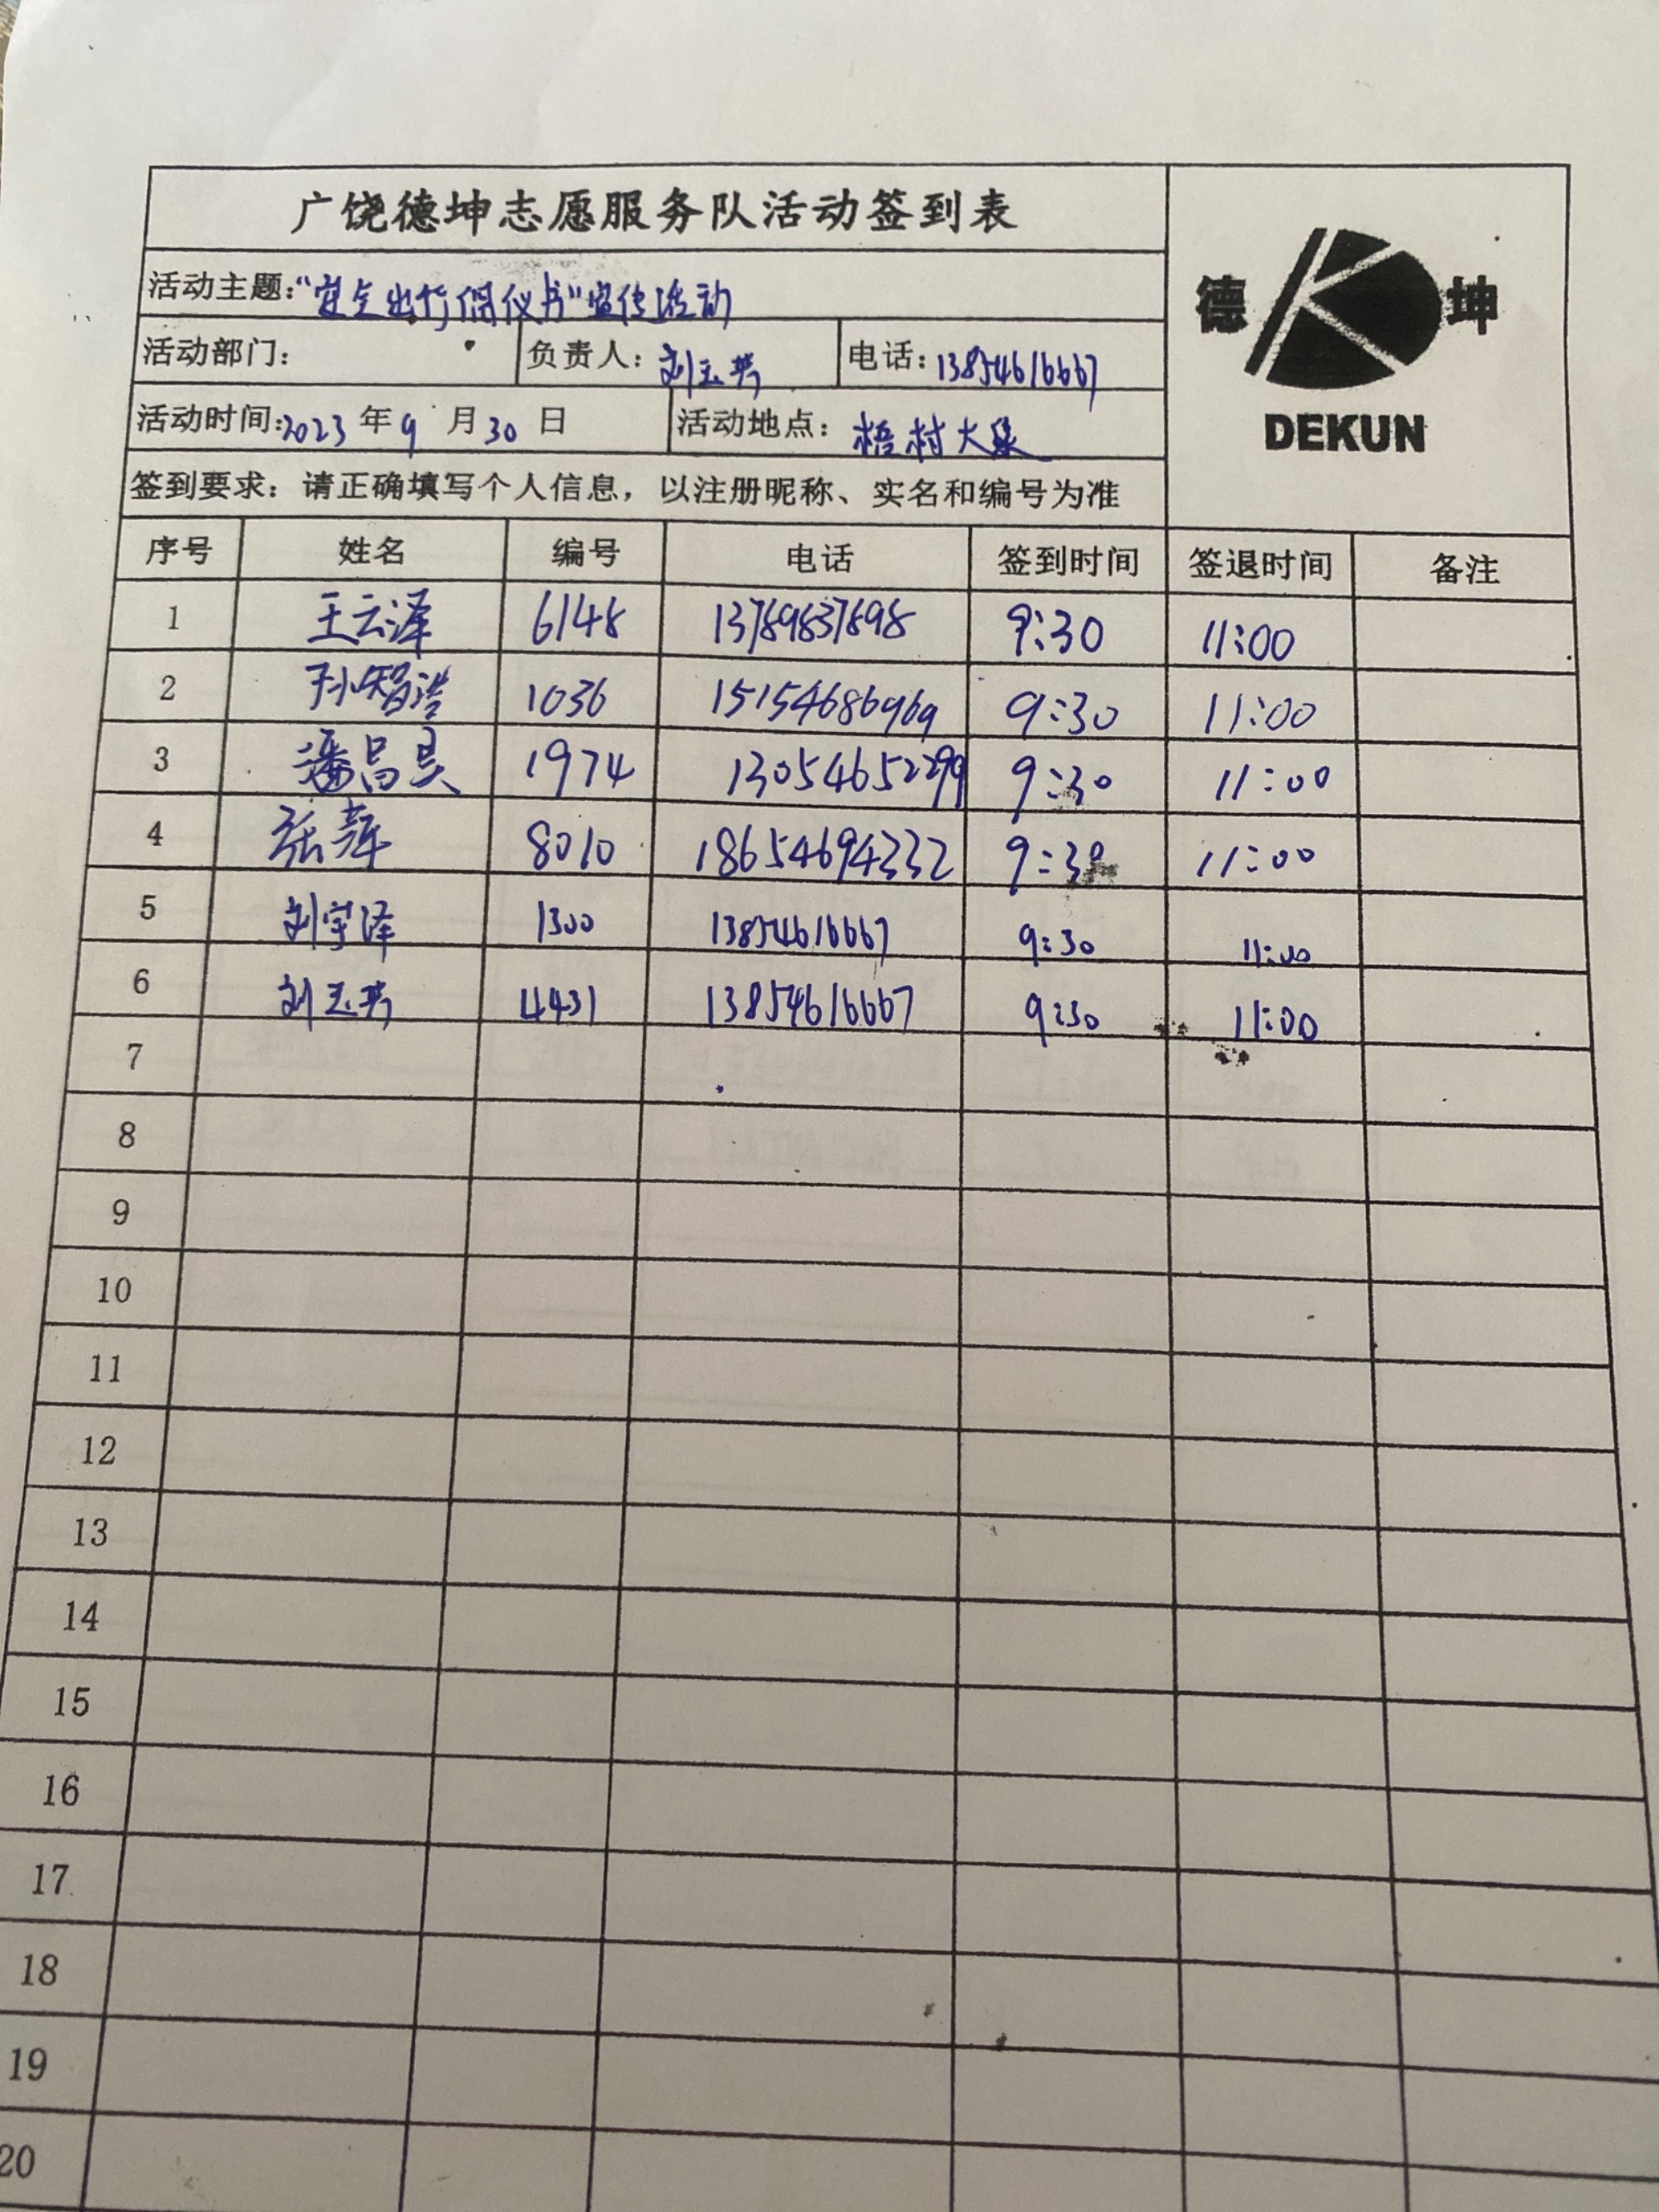 广饶德坤志愿服务队活动签到表
德 坤
DEKUN
活动主题:“安全出行倡议书”宣传活动
活动部门: 负责人: 刘玉芹 电话: 13854616667
活动时间: 2023 年 9 月 30 日 活动地点: 梧村大集
签到要求: 请正确填写个人信息，以注册昵称、实名和编号为准
序号 姓名 编号 电话 签到时间 签退时间 备注
1 王云泽 6148 13789837898 9:30 11:00
2 孙智浩 1036 15154686969 9:30 11:00
3 潘昌昊 1974 13054652299 9:30 11:00
4 张 8010 18654694332 9:30 11:00
5 刘宇泽 1300 13854616667 9:30 11:00
6 刘玉芹 4431 13854616667 9:30 11:00
7
8
9
10
11
12
13
14
15
16
17
18
19
20